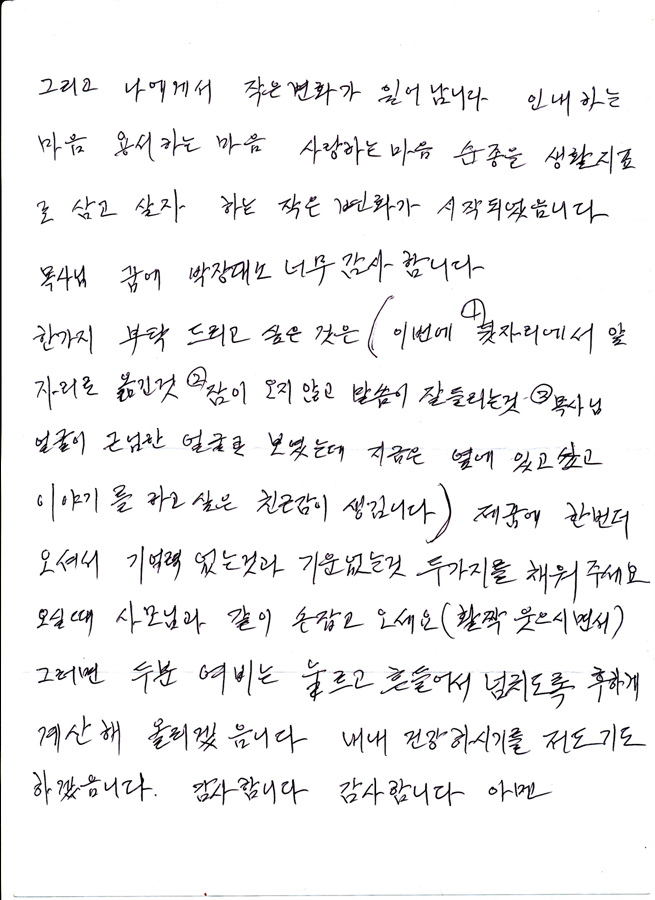 그리고 나에게서 작은변화가 일어납니다 인내하는
마음 용서하는 마음 사랑하는마음 순종을 생활지표
로 삼고 살자 하는 작은 변화가 시작되였읍니다
목사님 꿈에 박장대소 너무감사 합니다
한가지 부탁 드리고 싶은 것은 (이번에 ①뒷자리에서 앞
자리로 옮긴것 ②잠이 오지않고 말씀이 잘들리는것 ③목사님
얼굴이 근님한 얼굴로 보였는데 지금은 옆에 있고싶고
이야기를 하고싶은 친근감이 생깁니다) 제꿈에 한번더
오셔서 기억력 없는것과 기운없는것 두가지를 채워주세요
오실때 사모님과 같이 손잡고 오세요 (활짝 웃으시면서)
그러면 두분 여비는 눌르고 흔들어서 넘치도록 후하게
계산해 올리겠읍니다 내내 건강하시기를 저도 기도
하겠읍니다. 감사합니다 감사합니다 아멘